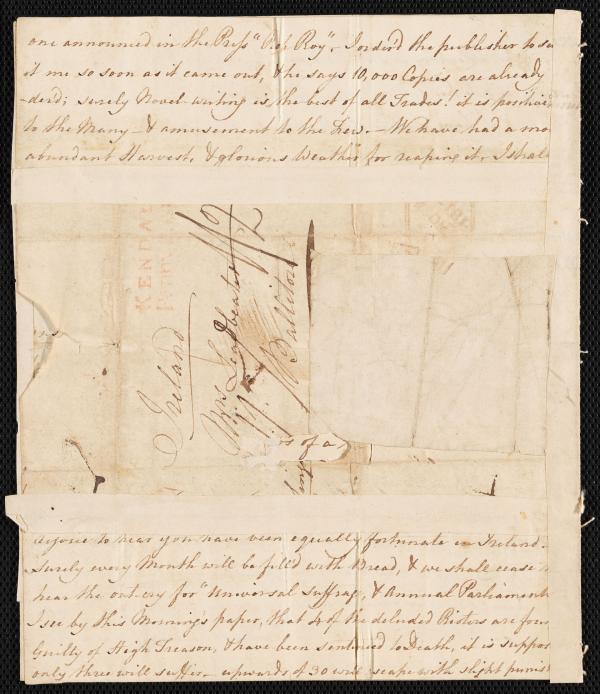 one announced in the Press "Rob Roy", I order'd the publisher to
it me so soon as it came out, & he says 10,000 Copies are already
-der'd; surely Novel-writing is the best of all Trades! it is
to the Many & amusement to the Few. — We have had a
abundant Harvest, & glorious Weather for reaping it. I
KENDAL
Ireland
Mrs Leadbeater
Ballitore
rs of a
rejoice to hear you have been equally fortunate in Ireland.
Surely every Mouth will be filled with Bread, & we shall cease
hear the outcry for "Universal Suffrage, & Annual Parliaments
I see by this Morning's paper, that 4 of the deluded Rioters are
Guilty of High Treason, & have been sentenced to Death, it is
only three will suffer — upwards of 30 will escape with slight